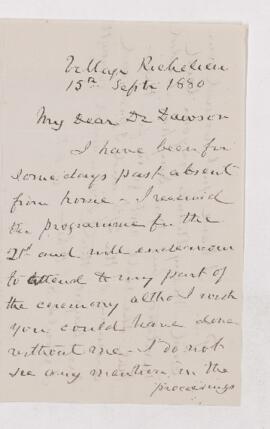 Village Richelieu
15th Sept 1880
My Dear Dr Dawson
I have been for
some days past absent
from home - I received
the programme for the
21st and will endeavour
to attend to my part of
the ceremony altho I wish
you could have done
without me - I do not
see any mention in the
proceedings